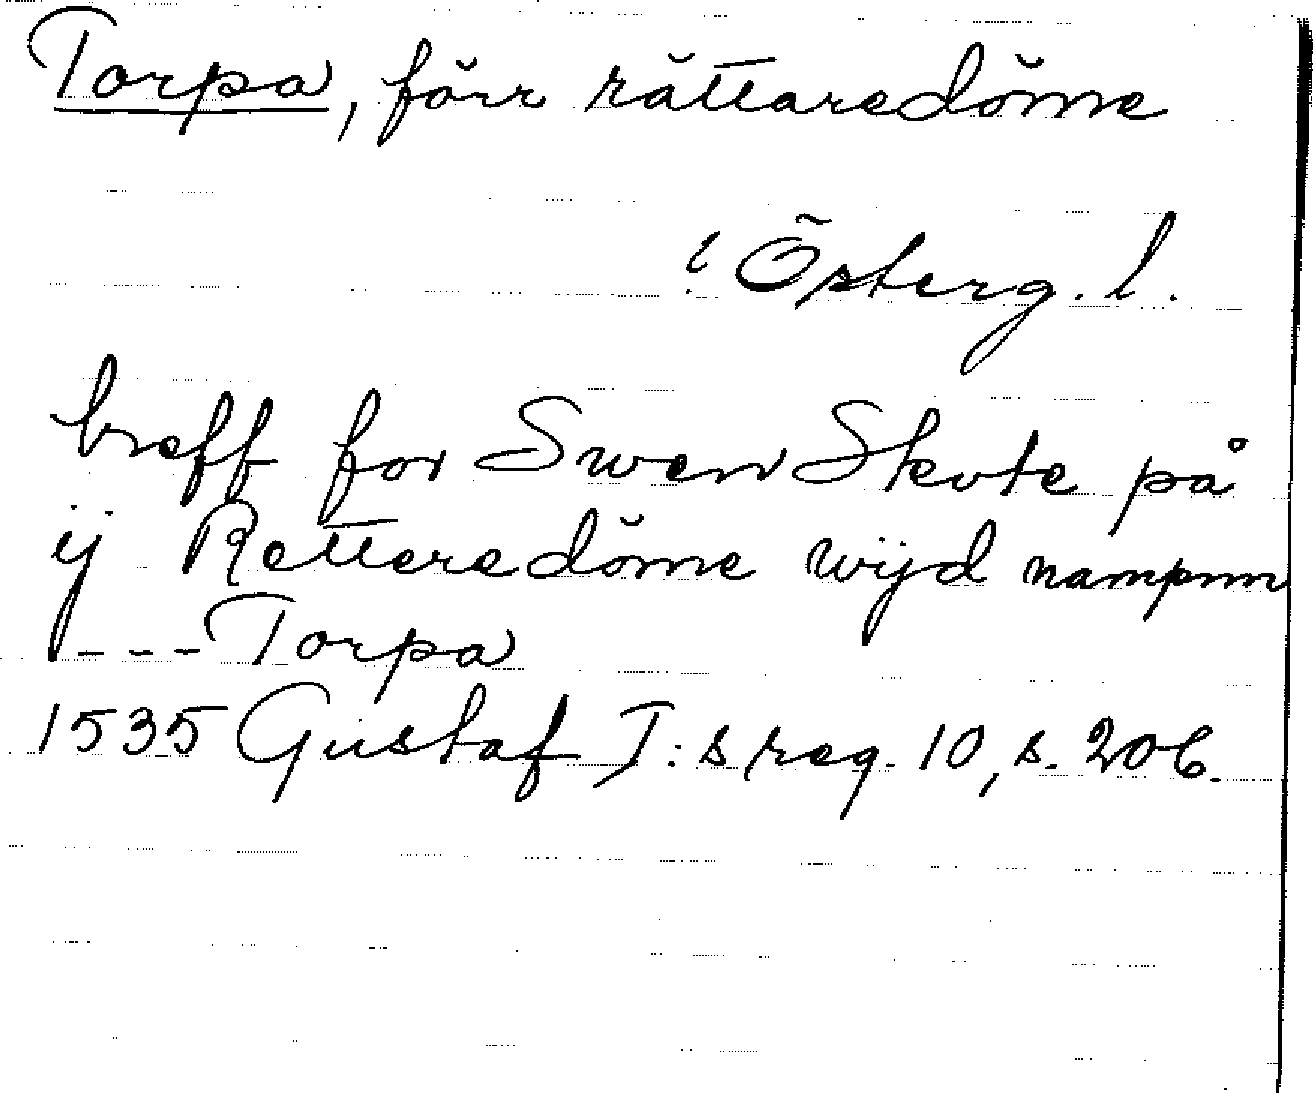 Torpa, förr rättaredöme
i Österg. l.
breff for Swen Skvte på
ij Retteredöme wijd nampnn
--- Torpa
1535 Gustaf I:s reg. 10, s. 206.